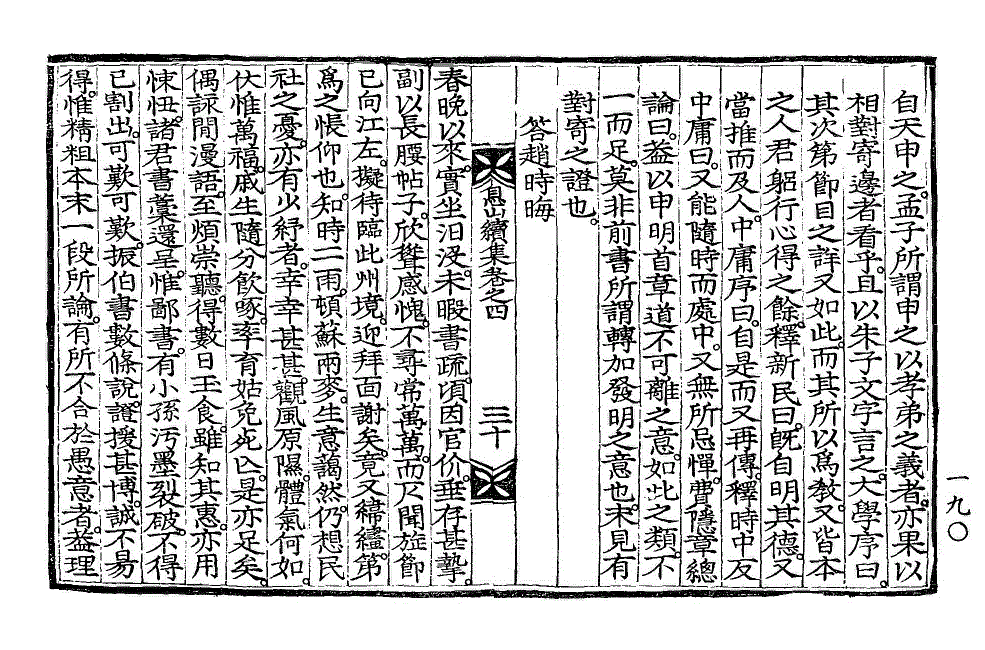 自天申之孟子所謂申之以孝弟之義者亦果以
相對寄邊者看乎且以朱子文字言之大學序曰
其次第節目之詳又如此而其所以爲敎又皆本
之人君躬行心得之餘釋新民曰旣自明其德又
當推而及人中庸序曰自是而又再傳釋時中反
中庸曰又能隨時而處中又無所忌憚費隱章總
論曰蓋以申明首章道不可離之意如此之類不
一而足莫非前書所謂轉加發明之意也未見有
對寄之證也
答趙時晦
息山續集卷之四 三十
春晩以來實坐汨沒未暇書疏頃因官价垂存甚摯
副以長腰帖子欣聳感愧不尋常萬萬而又聞旋節
已向江左擬待臨此州境迎拜面謝矣竟又繣繣第
爲之悵仰也知時二雨頓蘇兩麥生意藹然仍想民
社之憂亦有少紓者幸幸甚甚觀風原隰體氣何如
伏惟萬福戚生隨分飮啄率育姑免死亾是亦足矣
偶詠閒漫語至煩崇聽得數日玉食雖知其惠亦用
悚忸諸君書藁還呈惟鄙書有小孫汚墨裂破不得
已割出可歎可歎振伯書數條說證援甚博誠不易
得惟精粗本末一段所論有所不合於愚意者蓋理
一九〇